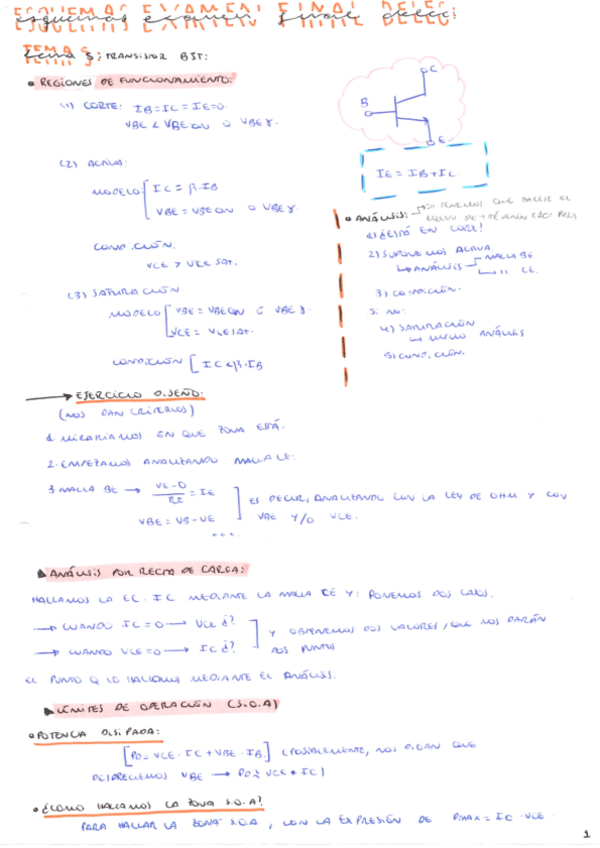 ESQUEMAS EXAMEN FINAL DELEC:
esquemas examen final delec:
TEMA 5: TRANSISTOR BJT:
• REGIONES DE FUNCIONAMIENTO:
(1) CORTE: IB=IC=IE=0.
VBE < VBEON O VBEγ.
(2) ACTIVA:
MODELO IC = β·IB
VBE = VBEON O VBEγ
CONDICIÓN:
VCE > VCE SAT.
(3) SATURACIÓN
MODELO VBE = VBEON O VBEγ
VCE = VCESAT.
CONDICIÓN [ IC<β·IB
C
B
E
IE = IB+IC
• ANÁLISIS: → SI TENEMOS QUE HACER EL
EQUIV DE THÉVENIN
1) ¿ESTÁ EN CORTE?
2) SUPONEMOS ACTIVA
↳ ANÁLISIS MALLA BE
" CE.
3) CONDICIÓN.
SI NO:
4) SATURACIÓN
↳ MISMO ANÁLISIS
5) CONDICIÓN.
→ EJERCICIO DISEÑO:
(NOS DAN CRITERIOS)
1. MIRARIAMOS EN QUE ZONA ESTÁ.
2. EMPEZAMOS ANALIZANDO MALLA CE.
3. MALLA BE → VE-0 / RE = IE
VBE = VB-VE
ES DECIR, ANALIZANDO CON LA LEY DE OHM Y CON
VBE Y/O VCE.
...
ANÁLISIS POR RECTA DE CARGA:
HALLAMOS LA EC. IC MEDIANTE LA MALLA CE Y: PONEMOS DOS CASOS.
→ CUANDO IC=0 → VCE ¿?
→ CUANDO VCE=0 → IC ¿?
Y OBTENEMOS DOS VALORES, QUE NOS DARÁN
DOS PUNTOS
EL PUNTO Q LO HALLAMOS MEDIANTE EL ANÁLISIS.
LÍMITES DE OPERACIÓN (S.O.A)
• POTENCIA DISIPADA:
[PD = VCE·IC + VBE·IB] (POSIBLEMENTE, NOS DIGAN QUE
DESPRECIEMOS VBE → PD ≈ VCE·IC)
• ¿COMO HALLAMOS LA ZONA S.O.A?
PARA HALLAR LA ZONA S.O.A, CON LA EXPRESIÓN DE PMAX = IC·VCE
1